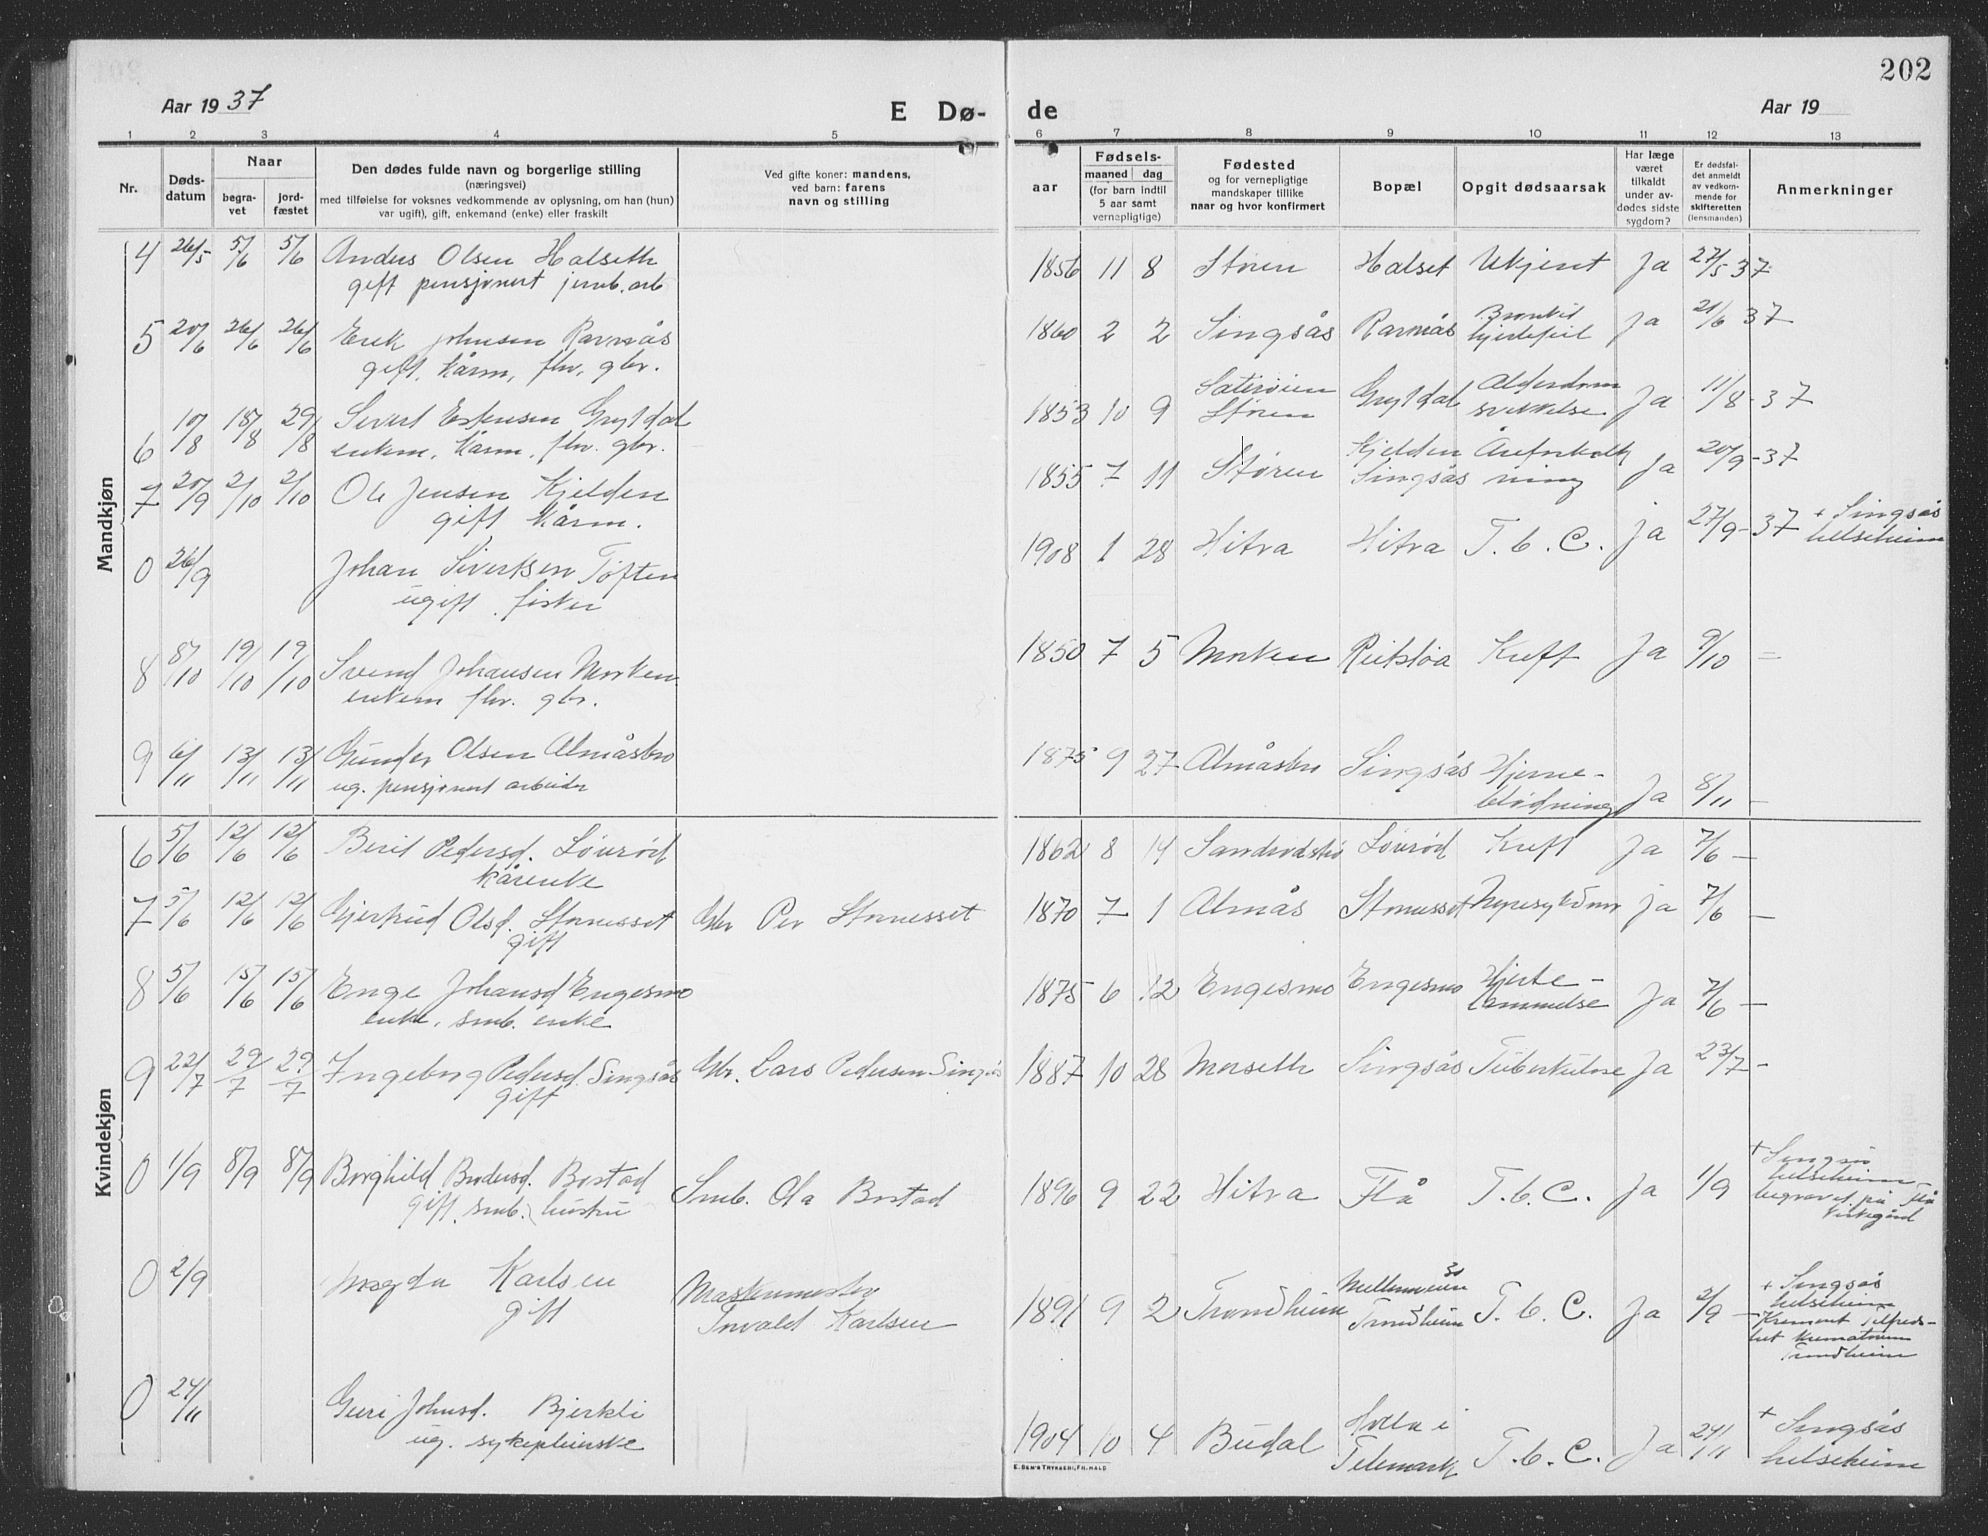 202
Aar 1937
E Dø-
de
Aar 19
1 2 3 4 5 6 7 8 9 10 11 12 13
Nr.
Døds-
datum
Naar
begra-
vet
jord-
fæstet
Den dødes fulde navn og borgerlige stilling
(næringsvei)
med tilføielse for voksnes vedkommende av oplysning, om han (hun)
var ugift), gift, enkemand (enke) eller fraskilt
Ved gifte koner: mandens,
ved barn: farens
navn og stilling
aar
Fødsels-
maaned dag
(for barn indtil
5 aar samt
vernepligtige)
Fødested
og for vernepligtige
mandskaper tillike
naar og hvor konfirmert
Bopæl
Opgit dødsaarsak
Har læge
været
tilkaldt
under av-
dødes sidste
sygdom?
Er dødsfal-
det anmeldt
av vedkom-
mende for
skifteretten
(lensmanden)
Anmerkninger
Mandkjøn
4 26/5 5/6 5/6 Anders Olsen Halseth 1856 11 8 Støren Halset Ukjent Ja 27/5 37
gift pensjonert jernb. arb
5 20/6 26/6 26/6 Erik Johnsen Ramås 1860 2 2 Singsås Ramås Bronkit hjertefeil Ja 21/6 37
gift, kårm, fhv. gbr.
6 10/8 18/8 29/8 Sivert Estensen Grytdal 1853 10 9 Støren Grytdal Alderdoms svekkelse Ja 11/8 - 37
enkem. kårm. fhv. gbr.
7 20/9 2/10 2/10 Ole Jensen Kjelden 1855 7 11 Støren Kjelden Singsås Åreforkalk ning Ja 20/9 - 37
gift kårm.
0 26/9 Johan Sivertsen Tøften 1908 1 28 Hitra Hitra T.b.C. ja 27/9 - 37 + Singsås helseheim
ugift fisker
8 8/10 19/10 19/10 Svend Johansen Morken 1850 7 5 Morken Reitsløa Kreft Ja 9/10 =
enkem fhv. gbr.
9 6/11 13/11 13/11 Gunder Olsen Almåsbro 1875 9 27 Almåsbro Singsås Hjerne- blødning Ja 8/11 -
ug. pensjonert arbeider
Kvindekjøn
6 5/6 12/6 12/6 Berit Pedersd. Løvrød 1862 8 14 Løvrød Kreft Ja 7/6 -
kårenke
7 5/6 12/6 12/6 Gjertrud Olsd. Storrusset Gbr Per Storrusset 1870 7 1 Almås Storrusset Nyresykdom ja 7/6 -
gift
8 5/6 15/6 15/6 Enge Johansd Engesmo 1875 6 12 Engesmo Engesmo Hjerte- lammelse Ja 7/6 -
enke, smb. enke
9 22/7 29/7 29/7 Ingeborg Pedersd. Singsås Gbr. Lars Pedersen Singsås 1887 10 28 Morseth Singsås Tuberkulose Ja 23/7 -
gift
0 1/9 8/9 8/9 Borghild Bendersd. Borstad Smb. Ola Borstad 1896 9 22 Hitra Flå T.b.C. Ja 1/9 + Singsås helseheim - begravet på Flå kirkegård
gift smb. hustru
0 2/9 Magda Karlsen Maskinmester Torvald Karlsen 1891 9 2 Trondheim Mellemveien 30 Trondheim T.b.C. Ja 2/9 - + Singsås helseheim - Kremert Tilfreds- het krematorium Trondheim
gift
0 24/11 Guri Johnsd. Bjerkli 1904 10 4 Budal Holla i Telemark T.b.C. Ja 24/11 + Singsås helseheim
ug. sykepleierske
E. SEM'S TRYKKERI, FR.HALD